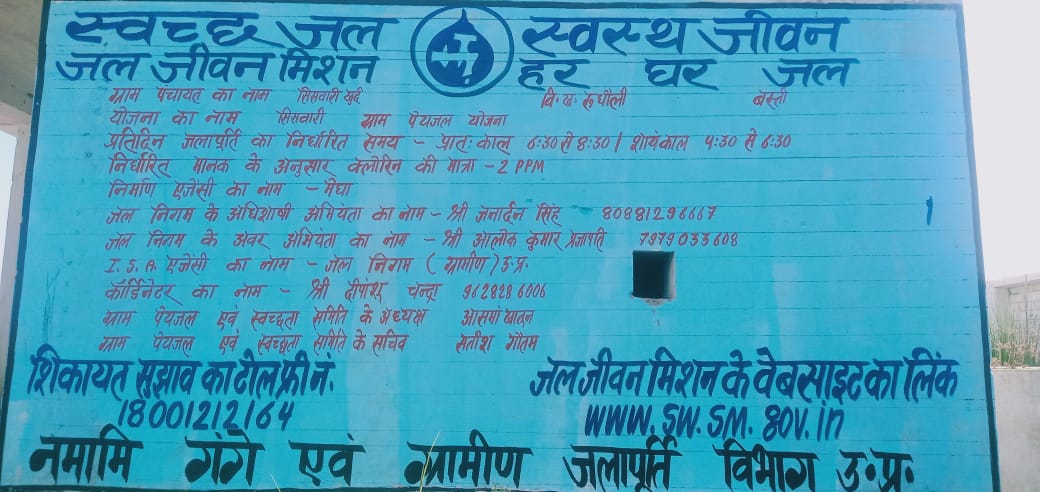 स्वच्छ जल स्वस्थ जीवन
जल जीवन मिशन हर घर जल
ग्राम पंचायत का नाम सिसवारी खुर्द वि. खः रूधौली बस्ती
योजना का नाम सिसवारी ग्राम पेयजल योजना
प्रतिदिन जलापूर्ति का निर्धारित समय - प्रातः काल 6:30 से 8:30 / शायंकाल 4:30 से 6:30
निर्धारित मानक के अनुसार क्लोरिन की मात्रा - 2 PPM
निर्माण एजेंसी का नाम - मेघा
जल निगम के अधिशाषी अभियंता का नाम - श्री जनार्दन सिंह 80881296667
जल निगम के अवर अभियंता का नाम - श्री आलोक कुमार प्रजापति 7979033608
I. S. A. एजेंसी का नाम - जल निगम (ग्रामीण) उ.प्र.
कॉर्डिनेटर का नाम - श्री दीपांशू चन्द्रा 9628286006
ग्राम पेयजल एवं स्वच्छता समिति के अध्यक्ष आसमां खातून
ग्राम पेयजल एवं स्वच्छता समिति के सचिव सतीश गौतम
शिकायत सुझाव का टोल फ्री नं. जल जीवन मिशन के वेबसाइट का लिंक
18001212164 www.sw.sm.gov.in
नमामि गंगे एवं ग्रामीण जलापूर्ति विभाग उ॰प्र॰